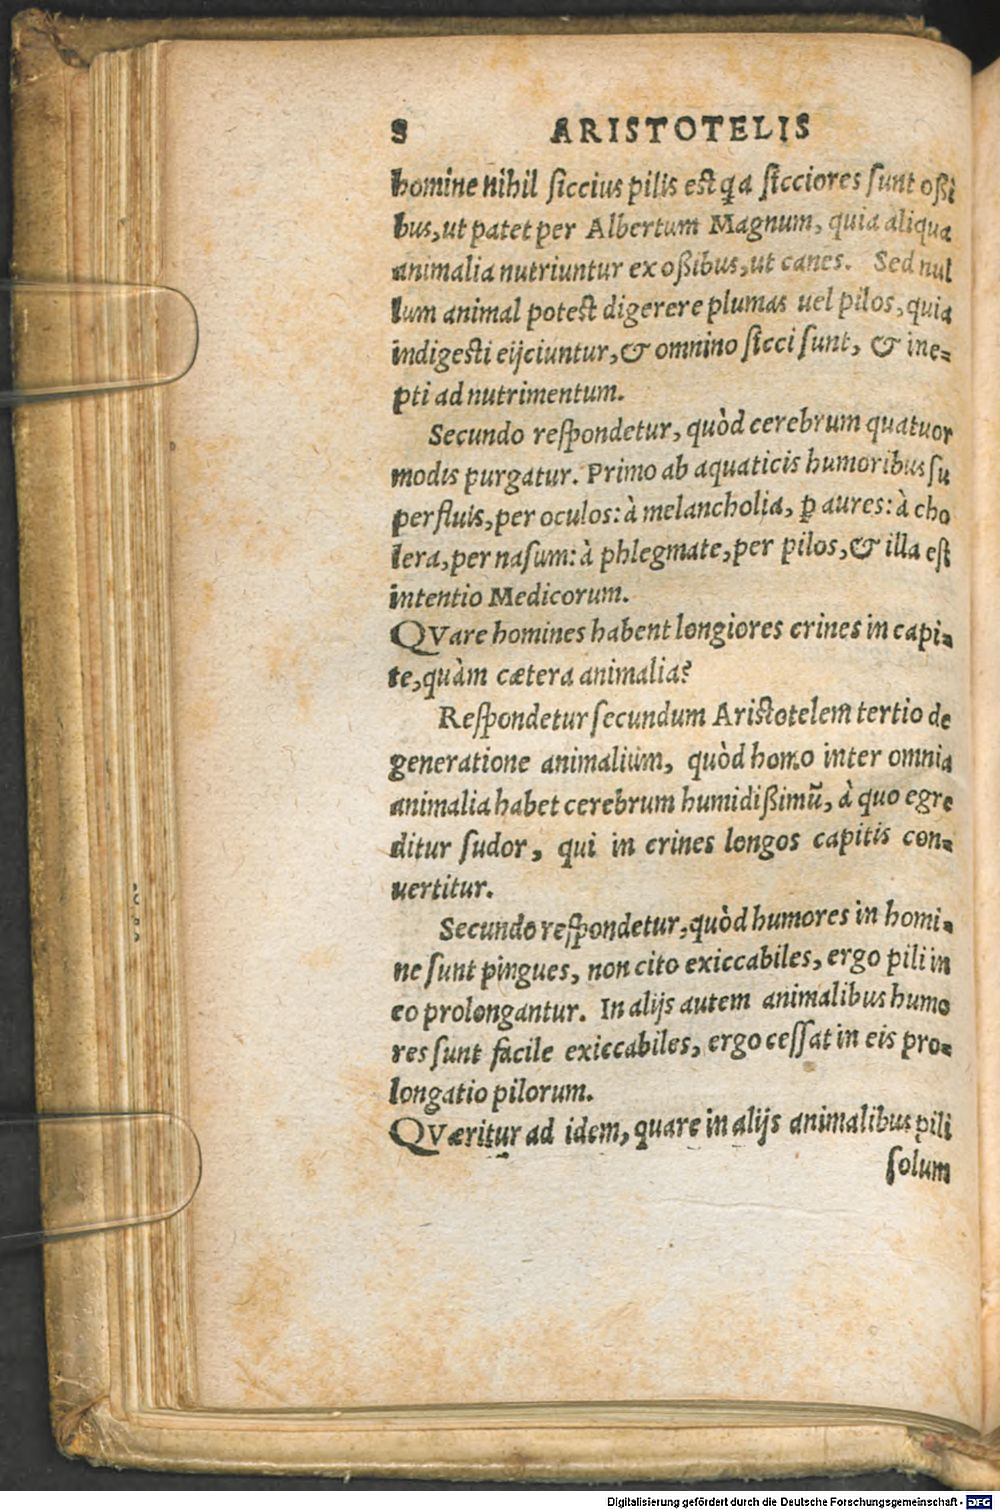 8 ARISTOTELIS
homine nihil ſiccius pilis est q̃a ſicciores ſunt oßi
bus, ut patet per Albertum Magnum, quia aliqua
animalia nutriuntur ex oßibus, ut canes. Sed nul
lum animal potest digerere plumas uel pilos, quia
indigesti eijciuntur, & omnino ſicci ſunt, & ine-
pti ad nutrimentum.
Secundo reſpondetur, quòd cerebrum quatuor
modis purgatur. Primo ab aquaticis humoribus ſu
perfluis, per oculos: à melancholia, ꝑ aures: à cho
lera, per naſum: à phlegmate, per pilos, & illa eſt
intentio Medicorum.
QVare homines habent longiores crines in capi-
te, quàm cætera animalia?
Reſpondetur ſecundum Aristotelem tertio de
generatione animalium, quòd homo inter omnia
animalia habet cerebrum humidißimũ, à quo egre
ditur ſudor, qui in crines longos capitis con-
uertitur.
Secundo reſpondetur, quòd humores in homi-
ne ſunt pingues, non cito exiccabiles, ergo pili in
eo prolongantur. In alijs autem animalibus humo
res ſunt facile exiccabiles, ergo ceſſat in eis pro-
longatio pilorum.
QVæritur ad idem, quare in alijs animalibus pili
ſolum
Digitalisierung gefördert durch die Deutsche Forschungsgemeinschaft - DFG